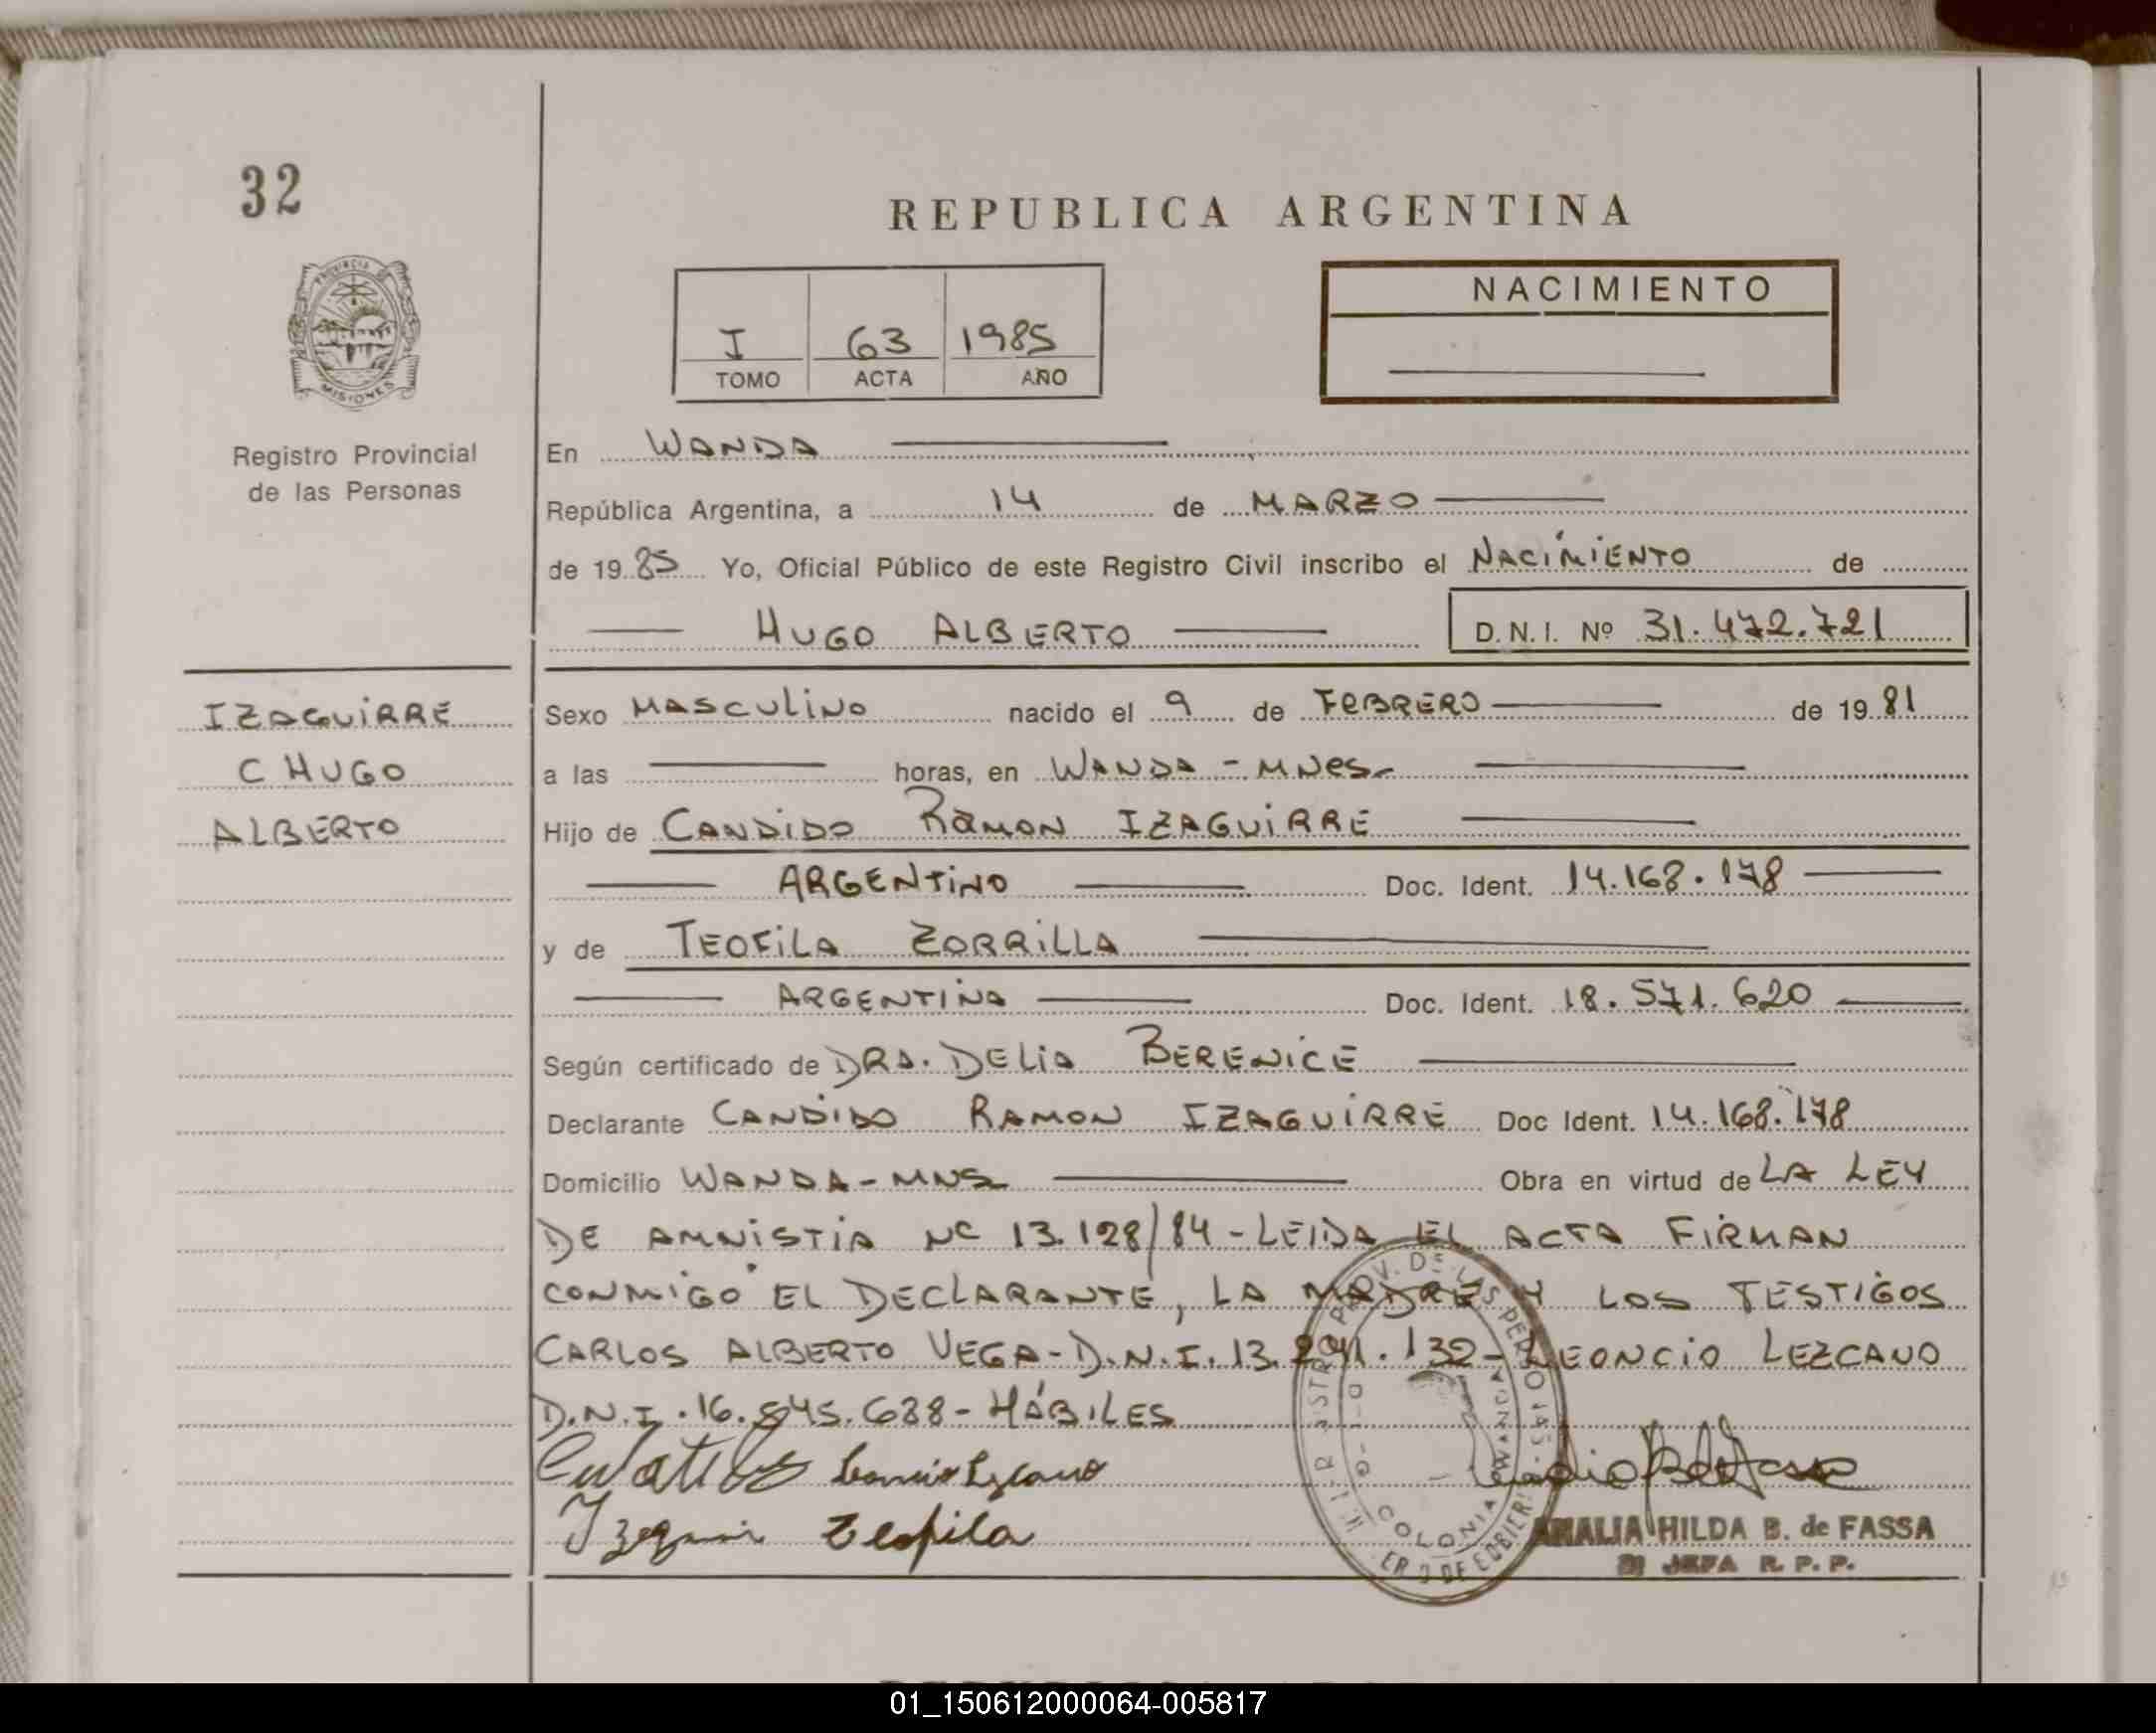 32
REPUBLICA ARGENTINA
PROVINCIA DE
MISIONES
I 63 1985
TOMO ACTA AÑO
NACIMIENTO
Registro Provincial
de las Personas
En WANDA
República Argentina, a 14 de MARZO
de 19 85 Yo, Oficial Público de este Registro Civil inscribo el NACIMIENTO de
HUGO ALBERTO D.N.I. Nº 31.472.721
IZAGUIRRE
C HUGO
ALBERTO
Sexo MASCULINO nacido el 9 de FEBRERO de 19 81
a las horas, en WANDA - MNES.
Hijo de CANDIDO RAMON IZAGUIRRE
ARGENTINO Doc. Ident. 14.168.178
y de TEOFILA ZORRILLA
ARGENTINA Doc. Ident. 18.571.620
Según certificado de DRA. DELIA BERENICE
Declarante CANDIDO RAMON IZAGUIRRE Doc Ident. 14.168.178
Domicilio WANDA - MNS Obra en virtud de LA LEY
DE AMNISTIA Nº 13.128/84 - LEIDA EL ACTA FIRMAN
CONMIGO EL DECLARANTE, LA MADRE Y LOS TESTIGOS
CARLOS ALBERTO VEGA - D.N.I. 13.291.132 - LEONCIO LEZCANO
D.N.I. 16.845.688 - HÁBILES
Leoncio Lezcano
Teofila
COLONIA WANDA
AMALIA HILDA B. de FASSA
JEFA R. P. P.
01_150612000064-005817